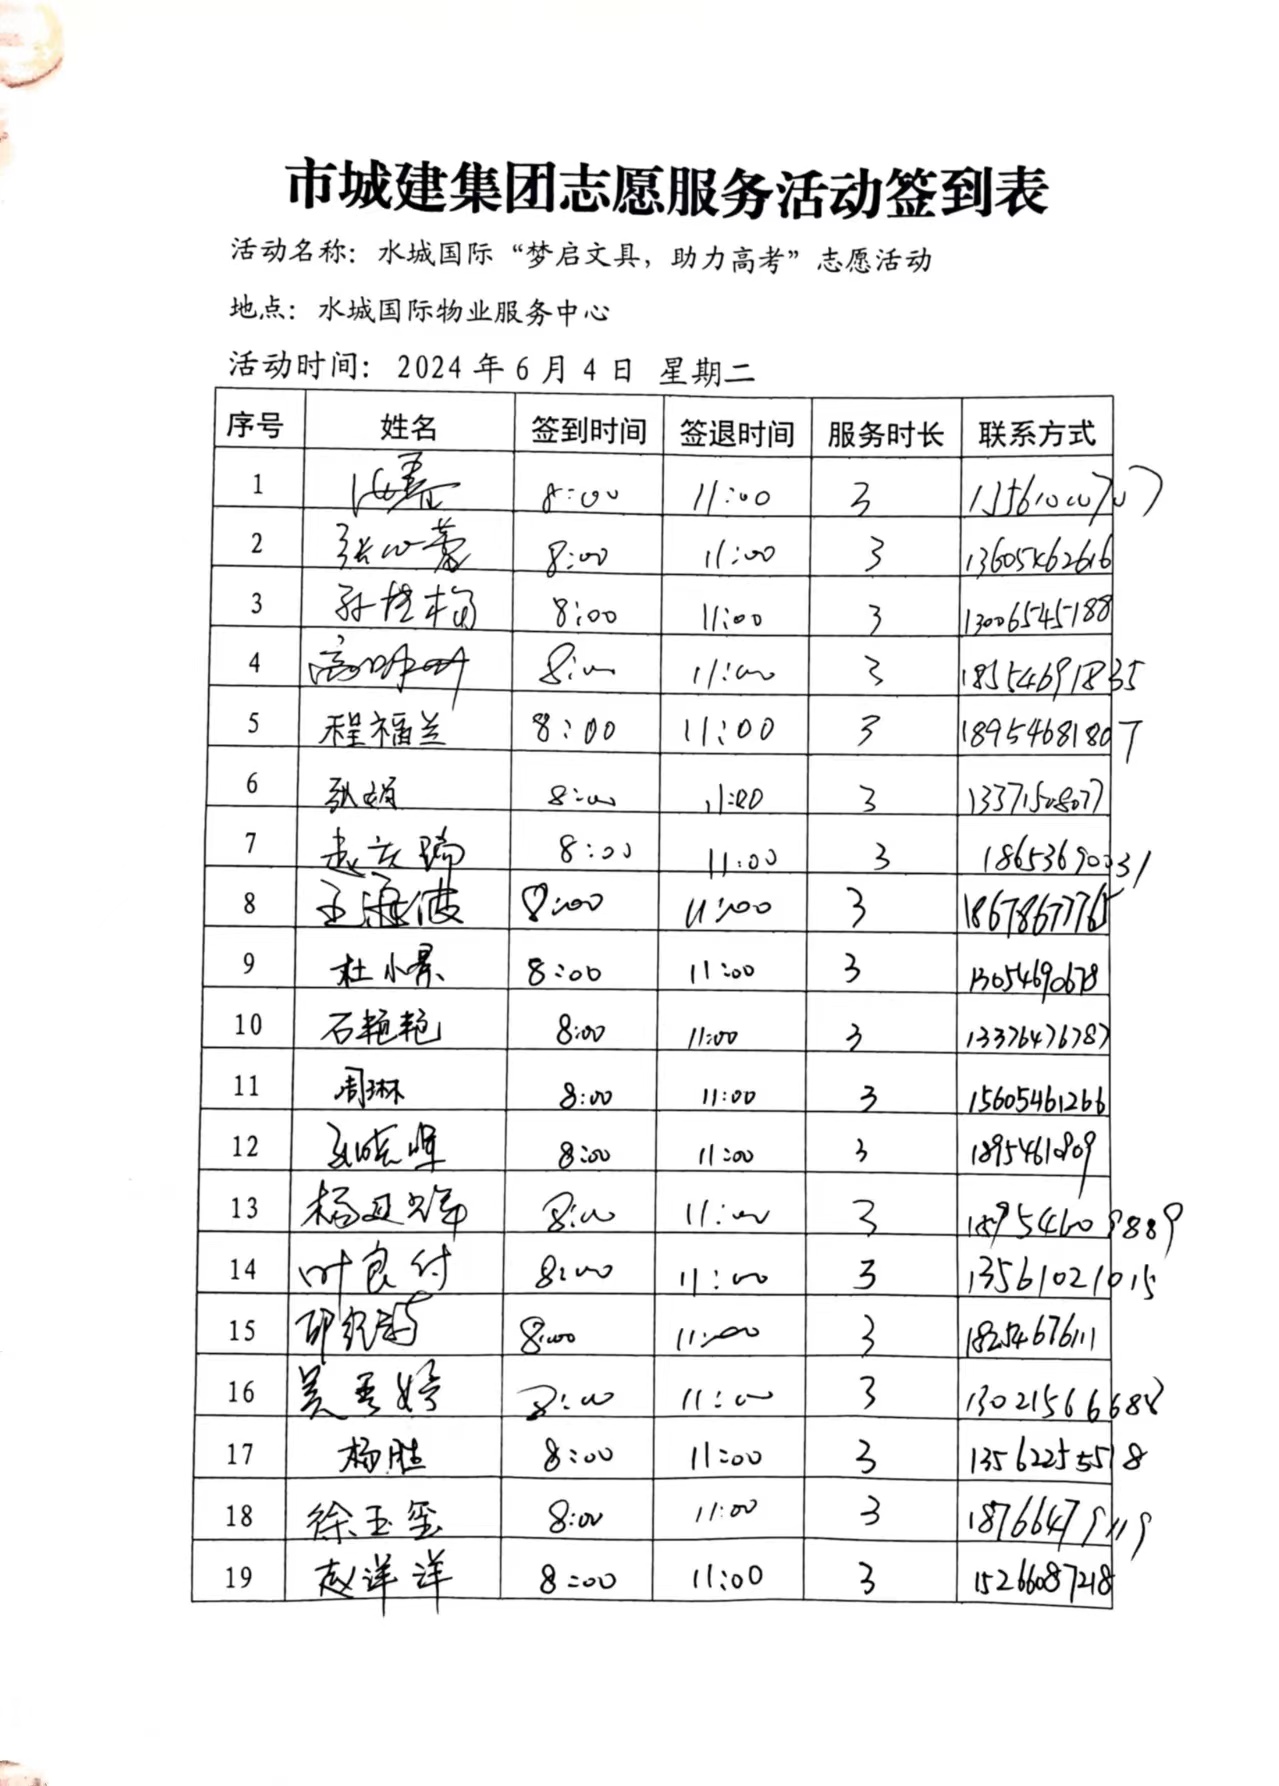 市城建集团志愿服务活动签到表
活动名称：水城国际“梦启文具，助力高考”志愿活动
地点：水城国际物业服务中心
活动时间：2024年6月4日 星期二
序号 姓名 签到时间 签退时间 服务时长 联系方式
1 8:00 11:00 3
2 8:00 11:00 3 13605462616
3 8:00 11:00 3 13006545188
4 8:00 11:00 3 18554691835
5 程福兰 8:00 11:00 3 18954681807
6 8:00 11:00 3 13371508077
7 8:00 11:00 3 18653690031
8 王海波 8:00 11:00 3 18678677765
9 杜小景 8:00 11:00 3 13054690678
10 石艳艳 8:00 11:00 3 13376476787
11 周琳 8:00 11:00 3 15605461266
12 8:00 11:00 3 18954610909
13 8:00 11:00 3 18954609889
14 叶良付 8:00 11:00 3 13561021015
15 8:00 11:00 3 18254676111
16 8:00 11:00 3 13021566688
17 杨胜 8:00 11:00 3 13562255518
18 徐玉玺 8:00 11:00 3 18766479119
19 赵洋洋 8:00 11:00 3 15266087218